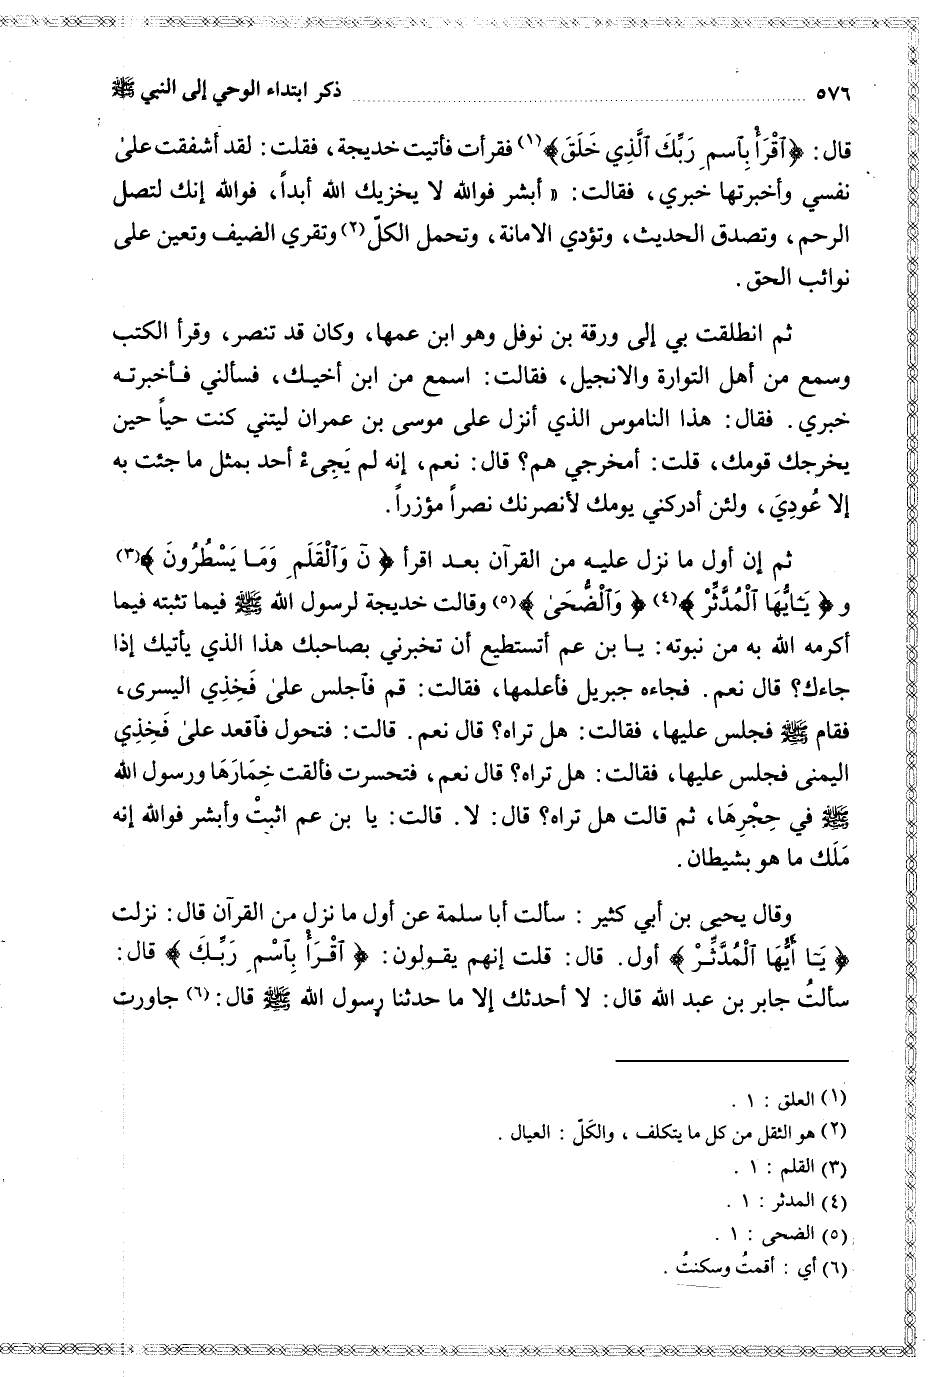 ٥٧٦ ........ ذكر ابتداء الوحي إلى النبي ﷺ
قال: ﴿ٱقْرَأْ بِٱسمِ رَبِّكَ ٱلَّذِي خَلَقَ﴾(١) فقرأت فأتيت خديجة، فقلت: لقد أشفقت علىٰ
نفسي وأخبرتها خبري، فقالت: « أبشر فوالله لا يخزيك الله أبداً، فوالله إنك لتصل
الرحم، وتصدق الحديث، وتؤدي الامانة، وتحمل الكلّ(٢) وتقري الضيف وتعين على
نوائب الحق.
ثم انطلقت بي إلى ورقة بن نوفل وهو ابن عمها، وكان قد تنصر، وقرأ الكتب
وسمع من أهل التوارة والانجيل، فقالت: اسمع من ابن أخيك، فسألني فأخبرته
خبري. فقال: هذا الناموس الذي أنزل على موسى بن عمران ليتني كنت حياً حين
يخرجك قومك، قلت: أمخرجي هم؟ قال: نعم، إنه لم يَجِىءْ أحد بمثل ما جئت به
إلا عُودِيَ، ولئن أدركني يومك لأنصرنك نصراً مؤزراً.
ثم إن أول ما نزل عليه من القرآن بعد اقرأ ﴿ نٓ وَٱلْقَلَمِ وَمَا يَسْطُرُونَ ﴾(٣)
و ﴿ يَـٰأيُّهَا ٱلْمُدَّثِّرْ ﴾(٤) ﴿ وَٱلْضُّحَىٰ ﴾(٥) وقالت خديجة لرسول الله ﷺ فيما تثبته فيما
أكرمه الله به من نبوته: يا بن عم أتستطيع أن تخبرني بصاحبك هذا الذي يأتيك إذا
جاءك؟ قال نعم. فجاءه جبريل فأعلمها، فقالت: قم فٱجلس علىٰ فَخِذِي اليسرى،
فقام ﷺ فجلس عليها، فقالت: هل تراه؟ قال نعم. قالت: فتحول فٱقعد علىٰ فَخِذِي
اليمنى فجلس عليها، فقالت: هل تراه؟ قال نعم، فتحسرت فألقت خِمَارَهَا ورسول الله
ﷺ في حِجْرِهَا، ثم قالت هل تراه؟ قال: لا. قالت: يا بن عم اثبتْ وأبشر فوالله إنه
مَلَك ما هو بشيطان.
وقال يحيى بن أبي كثير : سألت أبا سلمة عن أول ما نزل من القرآن قال: نزلت
﴿ يَا أَيُّهَا ٱلْمُدَّثِّرْ ﴾ أول. قال: قلت إنهم يقولون: ﴿ ٱقْرَأْ بِٱسْمِ رَبِّكَ ﴾ قال:
سألتُ جابر بن عبد الله قال: لا أحدثك إلا ما حدثنا رسول الله ﷺ قال:(٦) جاورت
(١) العلق : ١ .
(٢) هو الثقل من كل ما يتكلف ، والكَلّ : العيال .
(٣) القلم : ١ .
(٤) المدثر : ١ .
(٥) الضحى : ١ .
(٦) أي : أقمتُ وسكنتُ .